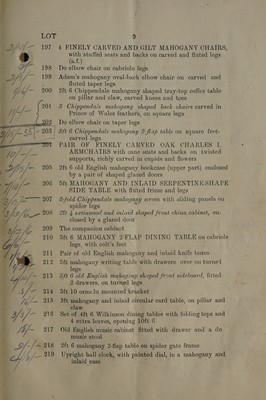 LOT 9
197 4 FINELY CARVED AND GILT MAHOGANY CHAIRS,
with stuffed seats and backs on carved and fluted legs
(a.f.)
198 Do elbow chair on cabriole legs
199 Adam's mahogany oval-back elbow chair on carved and
fluted taper legs
200 2ft 6 Chippendale mahogany shaped tray-top coffee table
on pillar and claw, carved knees and toes
201 3 Chippendale's mahogany shaped back chairs carved in
Prince of Wales feathers, on square legs
202 Do elbow chair on taper legs
203 3ft 6 Chippendale mahogany 2-flap table on square feet-
carved legs
204 PAIR OF FINELY CARVED OAK CHARLES I.
ARMCHAIRS with cane seats and backs on twisted
supports, richly carved in cupids and flowers
205 2ft 6 old English mahogany bookcase (upper part) enclosed
by a pair of shaped glazed doors
206 5ft MAHOGANY AND INLAID SERPENTINE-SHAPE
SIDE TABLE with fluted frieze and legs
207 2-fold Chippendale mahogany screen with sliding panels on
spider legs
208 2ft 4 satinwood and inlaid shaped front china cabinet, en-
closed by a glazed door
209 The companion cabinet
210 3ft 6 MAHOGANY 2-FLAP DINING TABLE on cabriole
legs, with colt's feet
211 Pair of old English mahogany and inlaid knife boxes
212 5ft mahogany writing table with drawers over on turned
legs
213 3ft 6 old English mahogany shaped front sideboard, fitted
2 drawers, on turned legs
214 3ft 10 ormolu mounted bracket
215 3ft mahogany and inlaid circular card table, on pillar and
claw
216 Set of 4ft 6 Wilkinson dining tables with folding tops and
4 extra leaves, opening 10ft 6
217 Old English music cabinet fitted with drawer and a do
music stool
218 2ft 6 mahogany 2-flap table on spider gate frame
219 Upright hall clock, with painted dial, in a mahogany and
inlaid case